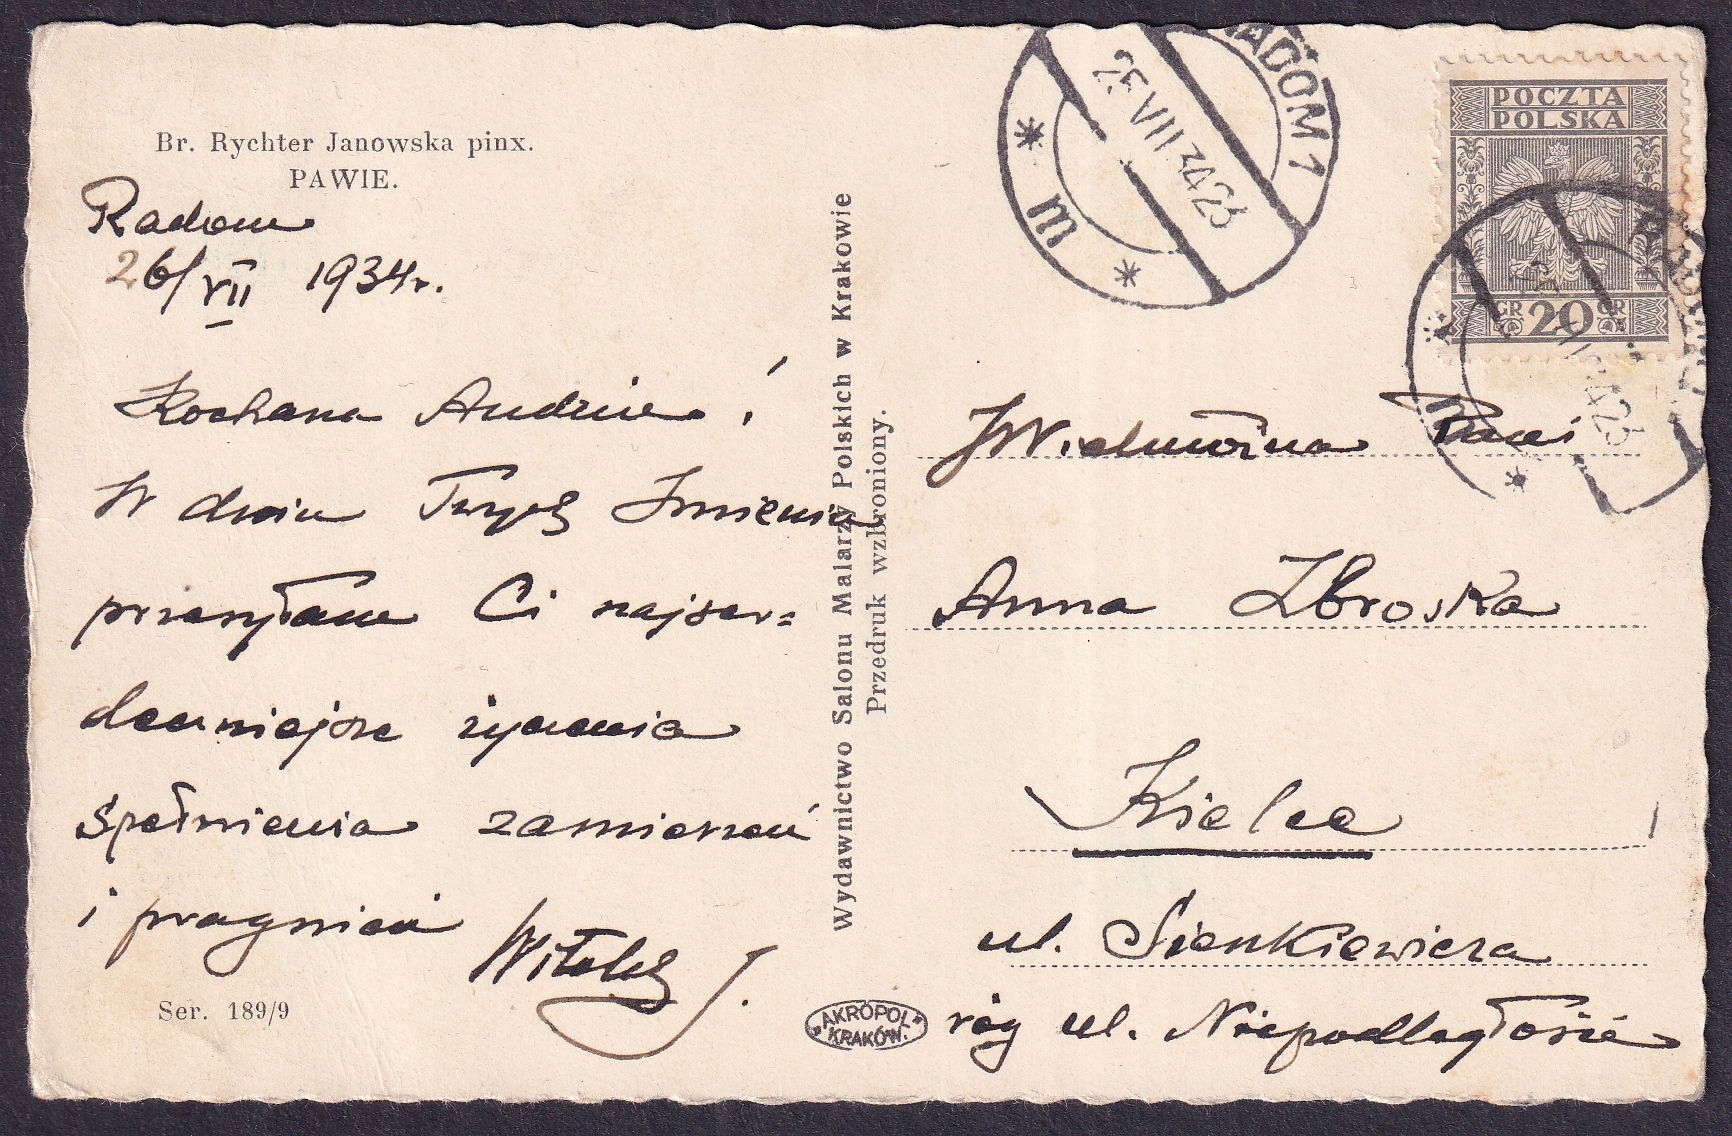 Br. Rychter Janowska pinx.
PAWIE.
Radom
26/VII 1934r.
Kochana Andziu!
W dniu Twych Imienin
przesyłam Ci najser=
deczniejsze życzenia
spełnienia zamierzeń
i pragnień
Witold J.
Ser. 189/9
Wydawnictwo Salonu Malarzy Polskich w Krakowie
Przedruk wzbroniony.
"AKROPOL"
KRAKÓW.
RADOM 1
25 VII 34 23
* m *
POCZTA
POLSKA
GR 20 GR
JWielmożna Pani
Anna Zbroska
Kielce
ul. Sienkiewicza
róg ul. Niepodległości